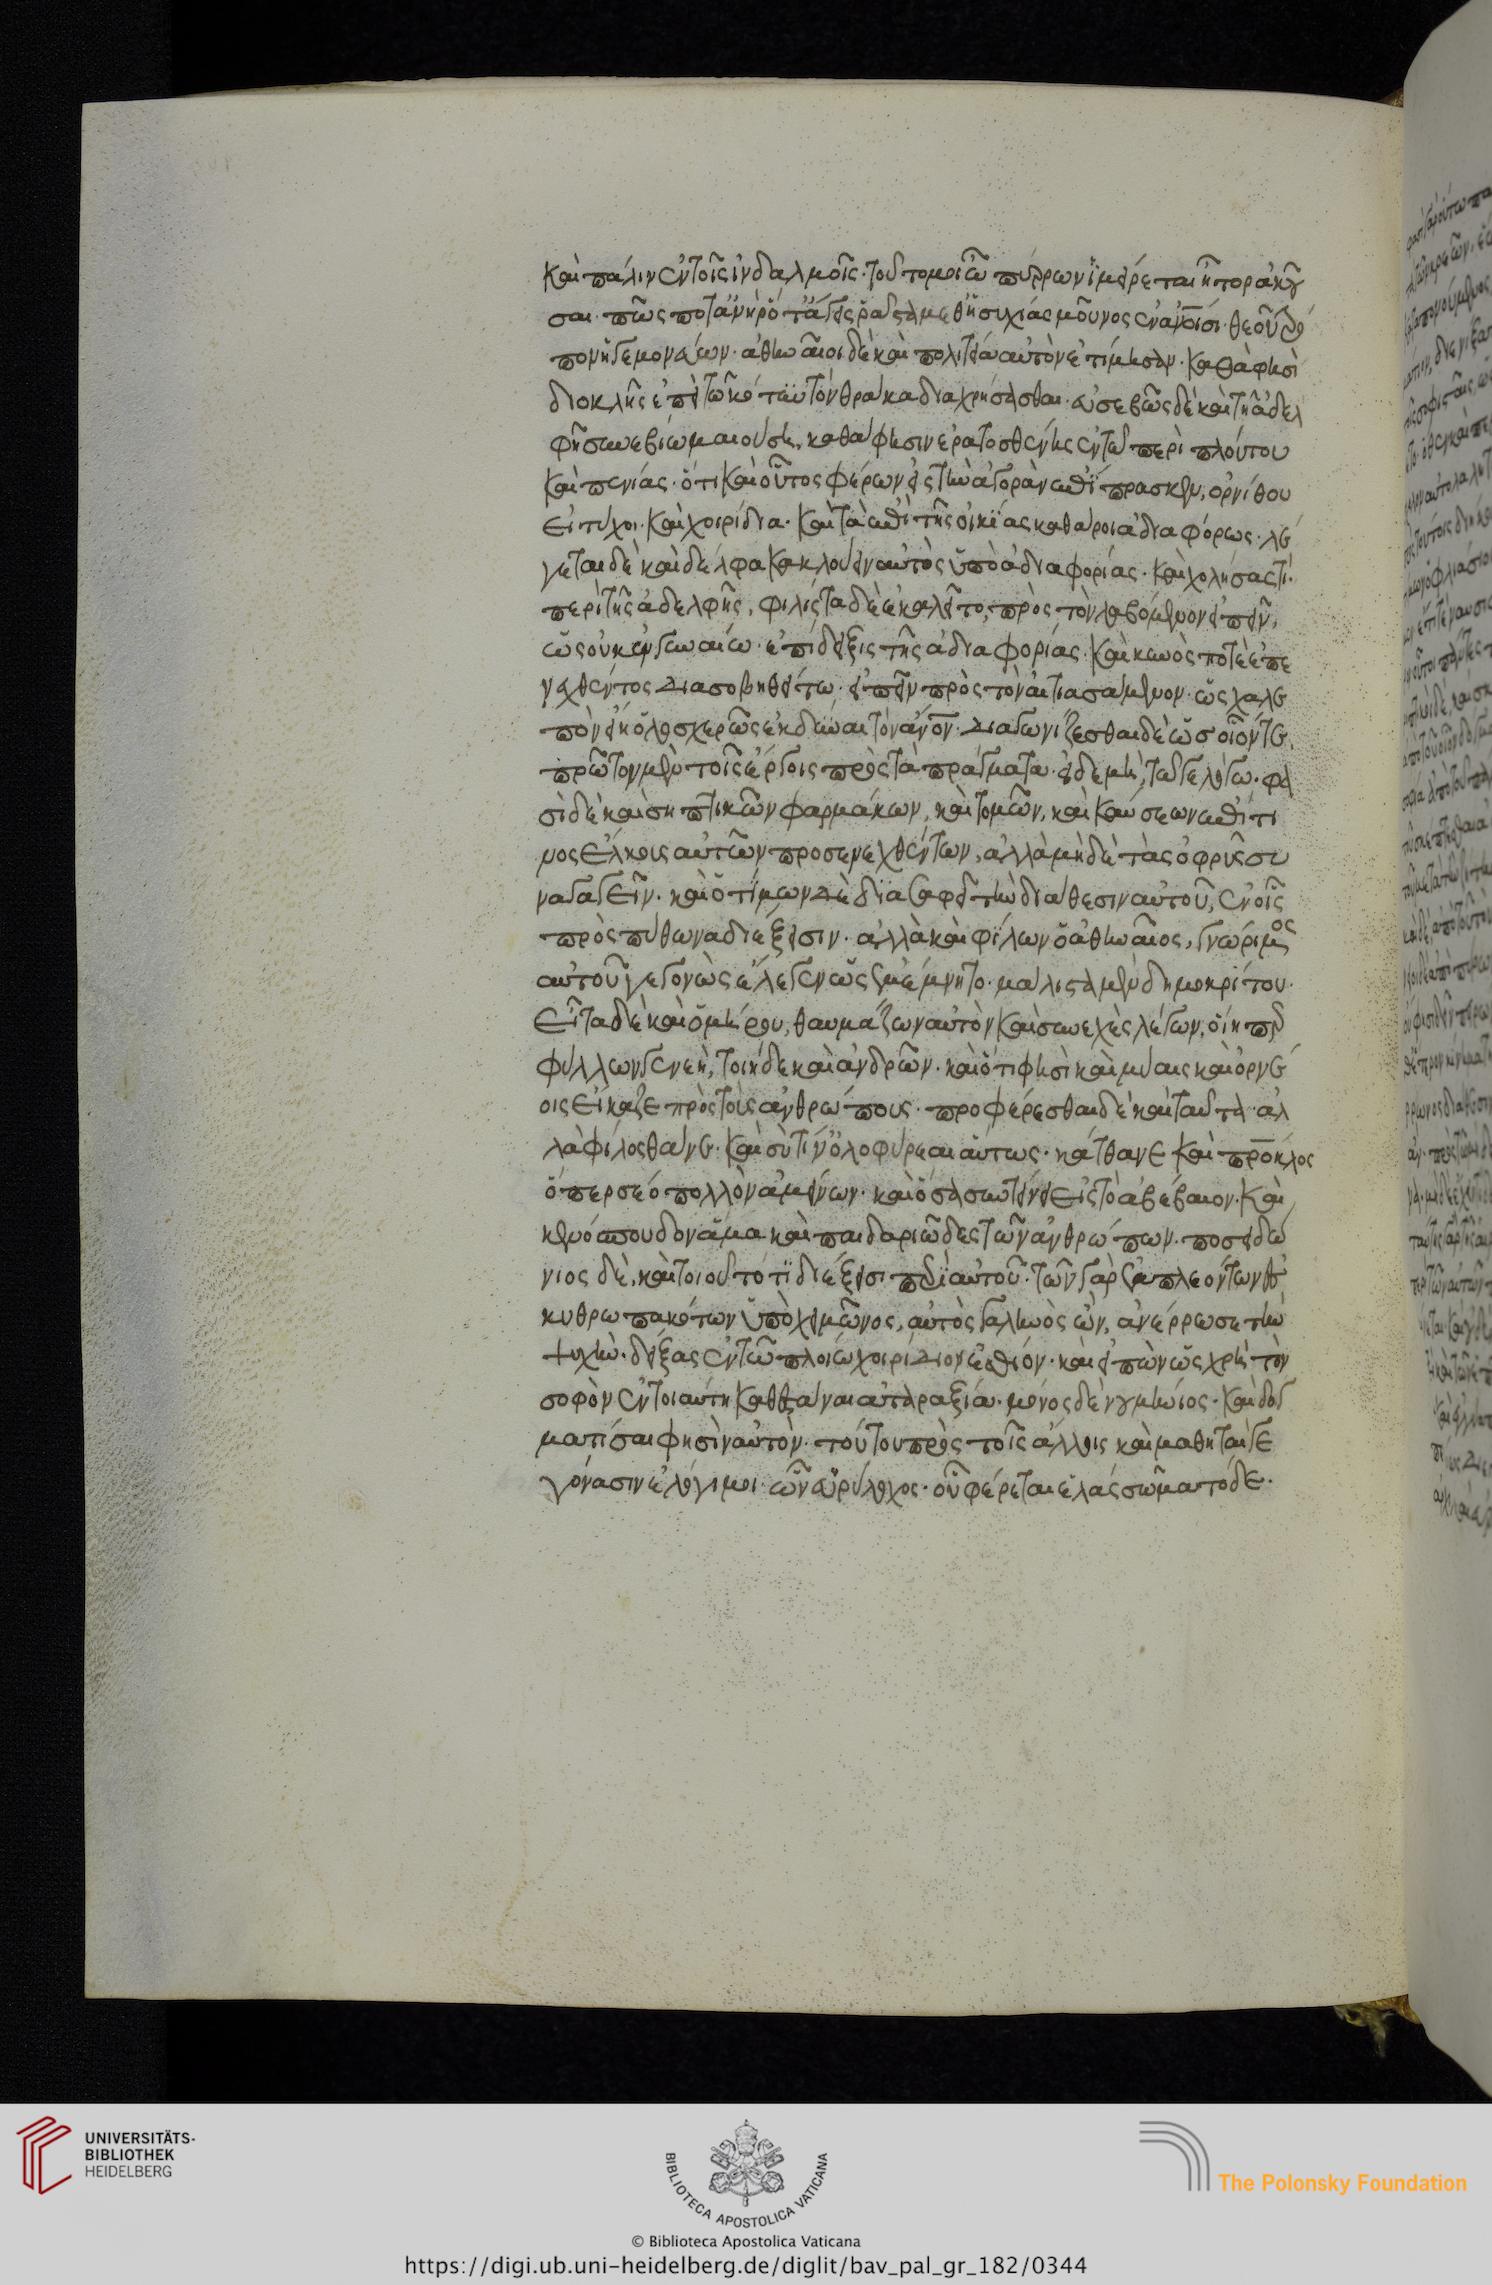 καὶ πάλιν ἐν τοῖς ἰνδαλμοῖς. τοῦτό μοι ὦ πύρρων ἱμείρεται ἦτορ ἀκοῦ
σαι. πῶς ποτ' ἀνὴρ ὅτ' ἄγεις ῥᾷστα μεθ' ἡσυχίας μοῦνος ἐν ἀν̅οισι. θεοῦ τρό
πον ἡγεμονεύων. ἀθηναῖοι δὲ καὶ πολιτείᾳ αὐτὸν ἐτίμησαν. καθά φησὶ
διοκλῆς ἐπὶ τῷ κότυϋ τὸν θρᾷκα διαχρήσασθαι. εὐσεβῶς δὲ καὶ τῇ ἀδελ
φῇ συνεβίω μαιούσῃ, καθά φησιν ἐρατοσθένης ἐν τῷ περὶ πλούτου
καὶ πενίας. ὅτι καὶ οὗτος φέρων εἰς τὴν ἀγορὰν ἐπίπρασκεν, ὀρνίθου
εἰ τύχοι. καὶ χοιρίδια. καὶ τὰ ἐπὶ τῆς οἰκίας καθαροι ἀδιαφόρως. λέ
γεται δὲ καὶ δέλφακα κλούειν αὐτὸς ὑπὸ ἀδιαφορίας. καὶ χολήσας τί.
περὶ τῆς ἀδελφῆς, φιλίστα δὲ ἐκαλεῖτο, πρὸς τὸν λαβόμενον εἰπεῖν,
ὡς οὐκ ἐν γυναίω ἐπίδειξις τῆς ἀδιαφορίας. καὶ κυνὸς ποτὲ ἐπε
νεχθέντος διασοβηθείτω. εἰπεῖν πρὸς τὸν αἰτιασάμενον. ὡς χαλε
πὸν εἴη ὁλοσχερῶς ἐκδῦναι τὸν ἄν̅ον. διαγωνίζεσθαι δὲ ὡς οἷόν τε,
πρῶτον μὲν τοῖς ἔργοις πρὸς τὰ πράγματα. εἰ δὲ μὴ, τῷ γε λόγω. φα
σὶ δὲ καὶ σηπτικῶν φαρμάκων, καὶ τομῶν, καὶ καύσεων ἐπί τι
μος ἕλκοις αὐτῶν προσενεχθέντων, ἀλλὰ μὴ δὲ τὰς ὀφρῦς συ
ναγαγεῖν. καὶ ὁ τίμων δὲ διασαφεῖ τὴν διάθεσιν αὐτοῦ, ἐν οἷς
πρὸς πύθωνα διέξεισιν. ἀλλὰ καὶ φίλων ὁ ἀθηναῖος, γνώριμος
αὐτοῦ γεγονὼς ἔλεγεν ὡς ἐμέμνητο. μάλιστα μὲν δημοκρίτου.
εἶτα δὲ καὶ ὁμήρου, θαυμάζων αὐτὸν καὶ συνεχὲς λέγων, οἵη περ
φύλλων γενεή, τοιήδε καὶ ἀνδρῶν. καὶ ὅτι φησὶ καὶ μυίαις καὶ ὀρνέ
οις εἴκαζε πρὸς τοὺς ἀνθρώπους. προφέρεσθαι δὲ καὶ ταῦτα. ἀλ
λὰ φίλος θάνε. καὶ σὺ τί ἢ ὀλοφύρεαι αὕτως. κάτθανε καὶ πρόκλος
ὅπερ σέο πολλὸν ἀμείνων. καὶ ὅσα συντείνει εἰς τὸ ἀβέβαιον. καὶ
κενόσπουδον ἅμα καὶ παιδαριῶδες τῶν ἀνθρώπων. ποσειδώ
νιος δὲ, καὶ τοιοῦτό τι διέξεισι περὶ αὐτοῦ. τῶν γὰρ συμπλεόντων ἐσ
κυθρωπακότων ὑπὸ χειμῶνος, αὐτὸς γαληνὸς ὢν, ἀνέρρωσε τὴν
ψυχὴν. δείξας ἐν τῷ πλοίω χοιρίδιον ἐσθίον. καὶ εἰπὼν ὡς χρὴ τὸν
σοφὸν ἐν τοιαύτη καθεστάναι ἀταραξίᾳ. μόνος δὲ νυμήνιος. καὶ δογ
ματίσαι φησὶν αὐτὸν. τούτου πρὸς τοῖς ἄλλοις καὶ μαθηταὶ γε
γόνασιν ἐλόγιμοι. ὧν εὐρύλοχος. οὗ φέρεται ἐλάσσωμα τόδε.
© Biblioteca Apostolica Vaticana
https://digi.ub.uni-heidelberg.de/diglit/bav_pal_gr_182/0344
UNIVERSITÄTS-
BIBLIOTHEK
HEIDELBERG
BIBLIOTECA APOSTOLICA VATICANA
The Polonsky Foundation